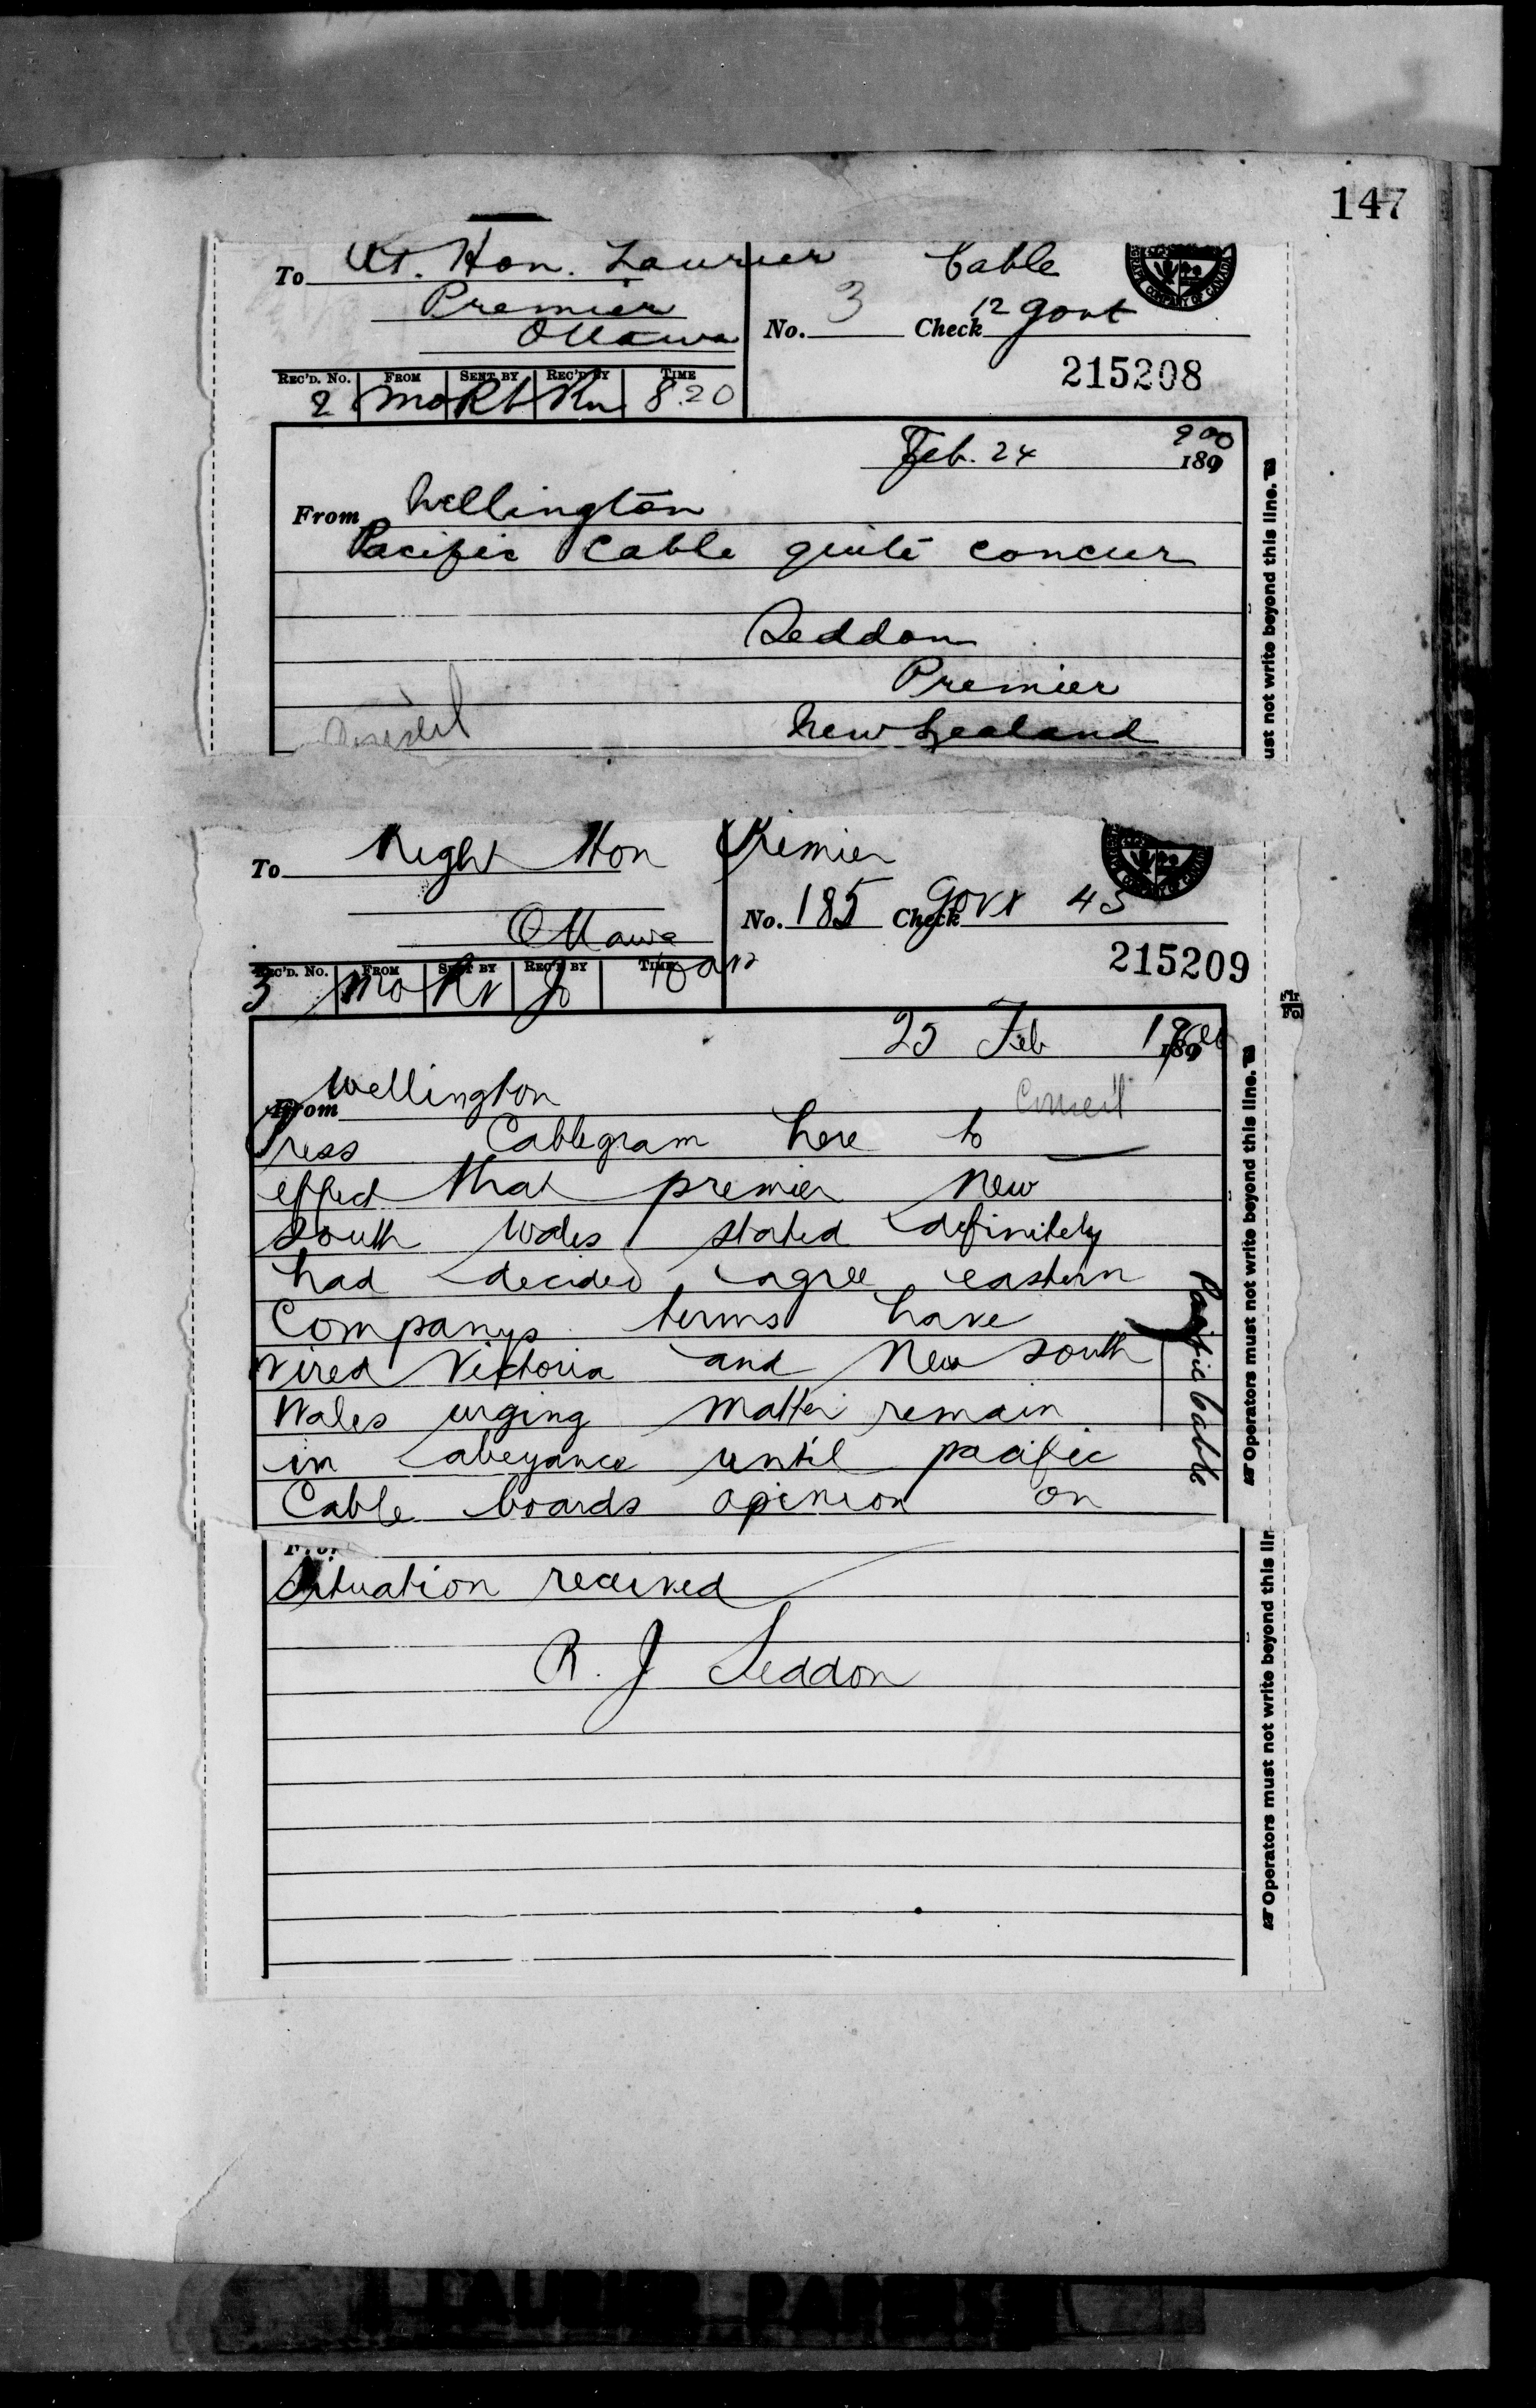 147
To Rt. Hon. Laurier Cable
Premier
Ottawa
No. 3 Check 12 Govt
COMPANY OF CANADA
215208
REC'D. No. FROM SENT BY REC'D BY TIME
2 Mo Rt 8.20
Feb. 24 1899 900
From Wellington
Pacific Cable quite concur
Seddon
Premier
New Zealand
ust not write beyond this line.
To Right Hon Premier
Ottawa
No. 185 Check Govt 43
COMPANY OF CANADA
215209
REC'D. No. FROM SENT BY REC'D BY TIME
3 Mo Rv Jo 10 am
25 Feb 189 1900
From Wellington
Council
Press Cablegram here to
effect that premier New
South Wales stated definitely
had decided agree eastern
Companys terms have
wired Victoria and New South
Wales urging matter remain
in abeyance until pacific
Cable boards opinion on
Pacific Cable
Operators must not write beyond this line.
Situation received
R. J Seddon
Operators must not write beyond this lin
LAURIER PAPERS